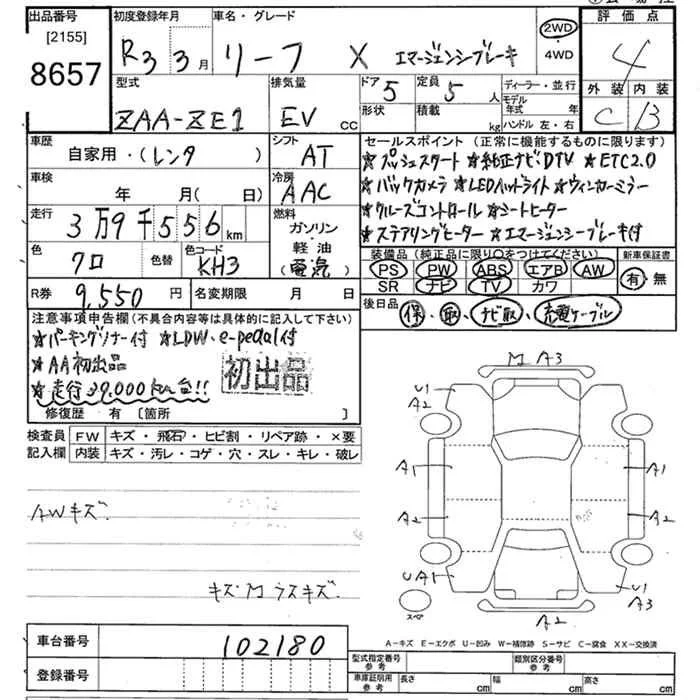 出品番号
[2155]
8657
初度登録年月
R3 3月
車名・グレード
リーフ X エマージェンシーブレーキ
2WD
・
4WD
評価点
4
外装 内装
C B
型式
ZAA-ZE1
排気量
EV cc
ドア
5
形状
定員
5 人
積載
kg
ディーラー・並行
モデル
年式 年
ハンドル 左・右
車歴
自家用・(レンタ )
シフト
AT
車検
年 月( 日)
冷房
AAC
走行
3万9千556km
燃料
ガソリン
軽・油
(電気)
色
クロ
色替
色コード
KH3
セールスポイント(正常に機能するものに限ります)
★プッシュスタート ★純正ナビDTV ★ETC2.0
★バックカメラ ★LEDヘッドライト ★ウィンカーミラー
★クルーズコントロール ★シートヒーター
★ステアリングヒーター ★エマージェンシーブレーキ付
装備品(純正品に限り○をつけてください)
PS PW ABS エアB AW
SR ナビ TV カワ
新車保証書
有・無
R券
9,550円
名変期限 月 日
後日品
保・取・ナビ取・充電ケーブル
注意事項申告欄(不具合内容等は具体的に記入して下さい)
★パーキングソナー付 ★LDW・e-pedal付
★AA初出品
初出品
★走行39,000km台!!
修復歴 有 [箇所 ]
検査員
記入欄
FW キズ・飛石・ヒビ割・リペア跡・×要
内装 キズ・汚レ・コゲ・穴・スレ・キレ・破レ
AWキズ
キズMウスキズ
M A3
U1
A2
A1
A1
A2
A2
UA1
U1
A3
A2
スペア
車台番号
102180
登録番号
A-キズ E-エクボ U-凹み W-補修跡 S-サビ C-腐食 XX-交換済
型式指定番号
参考
類別区分番号
参考
車庫証明用
参考
長さ cm
幅 cm
高さ cm